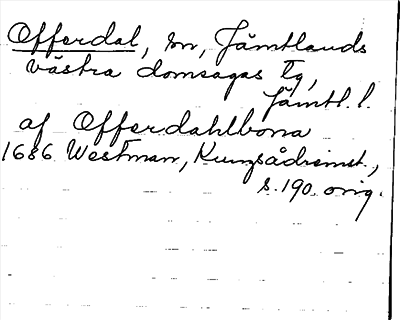 Offerdal, sn, Jämtlands
västra domsagas tg,
Jämtl. l.
af Offerdahlbona
1686 Westman, Kungsådreinst.,
s. 190. orig.